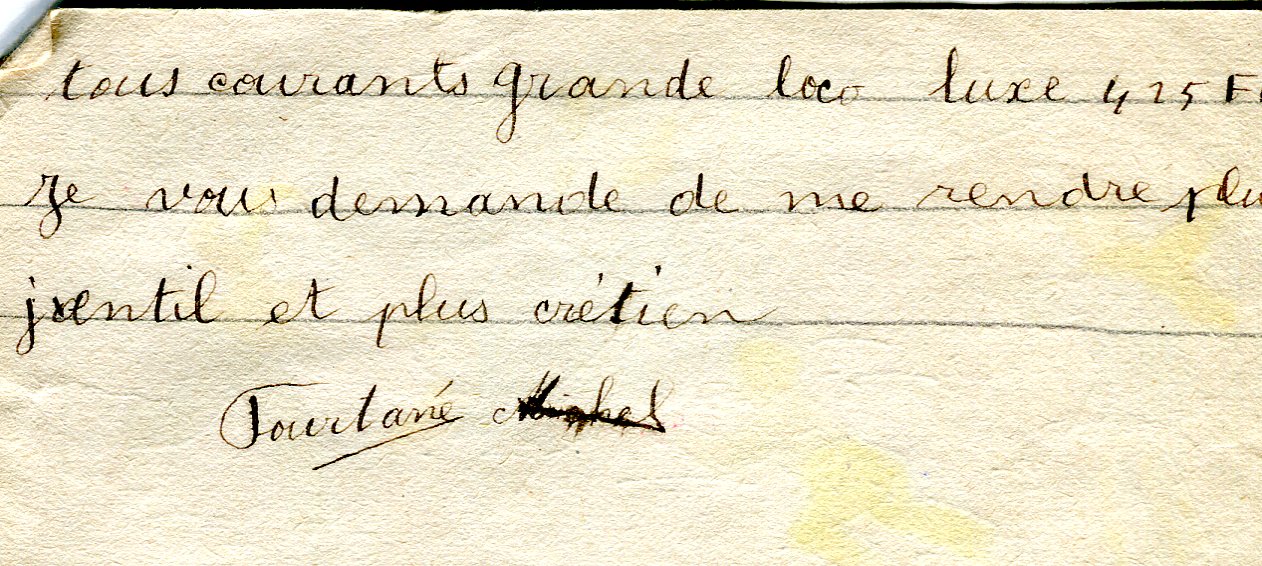 tous courants grande loco luxe 425 F
Je vous demande de me rendre plu
jentil et plus crétien
Tourtané Michel